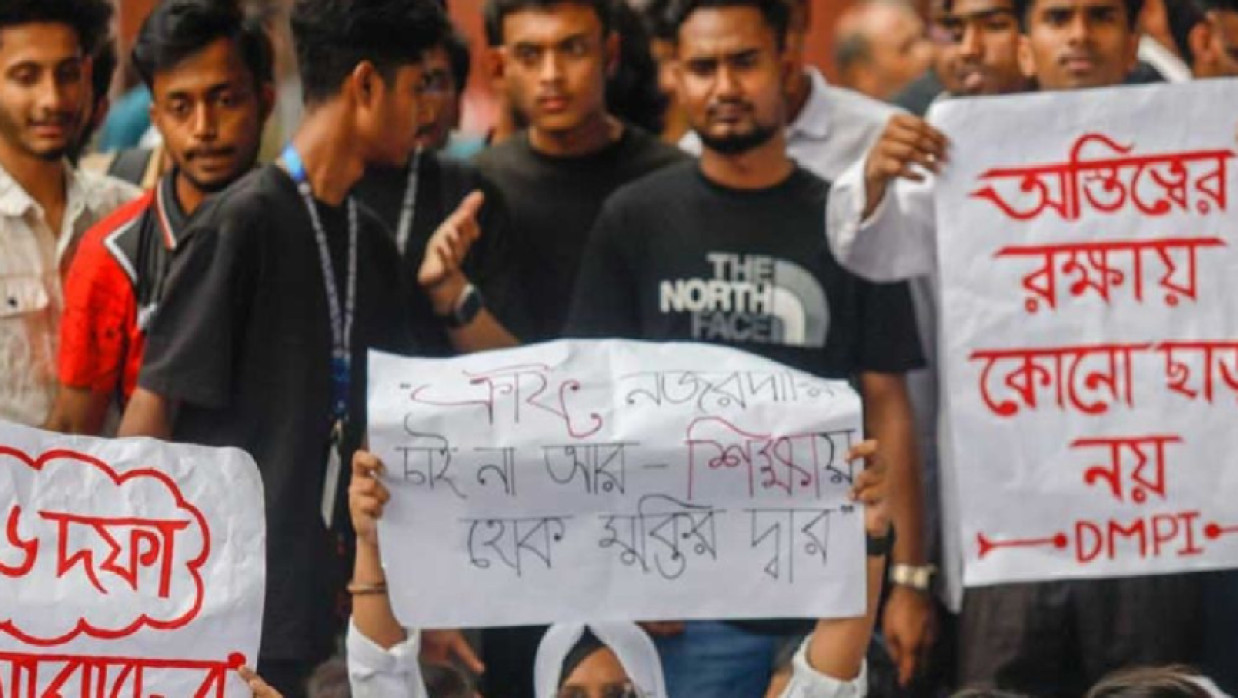 THE
NORTH
FACE
"ক্রাফট নজরদারি
চাই না আর - শিক্ষায়
হোক মুক্তির দ্বার"
অস্তিত্বের
রক্ষায়
কোনো ছাড়
নয়
DMPI
৬ দফা
আমাদের